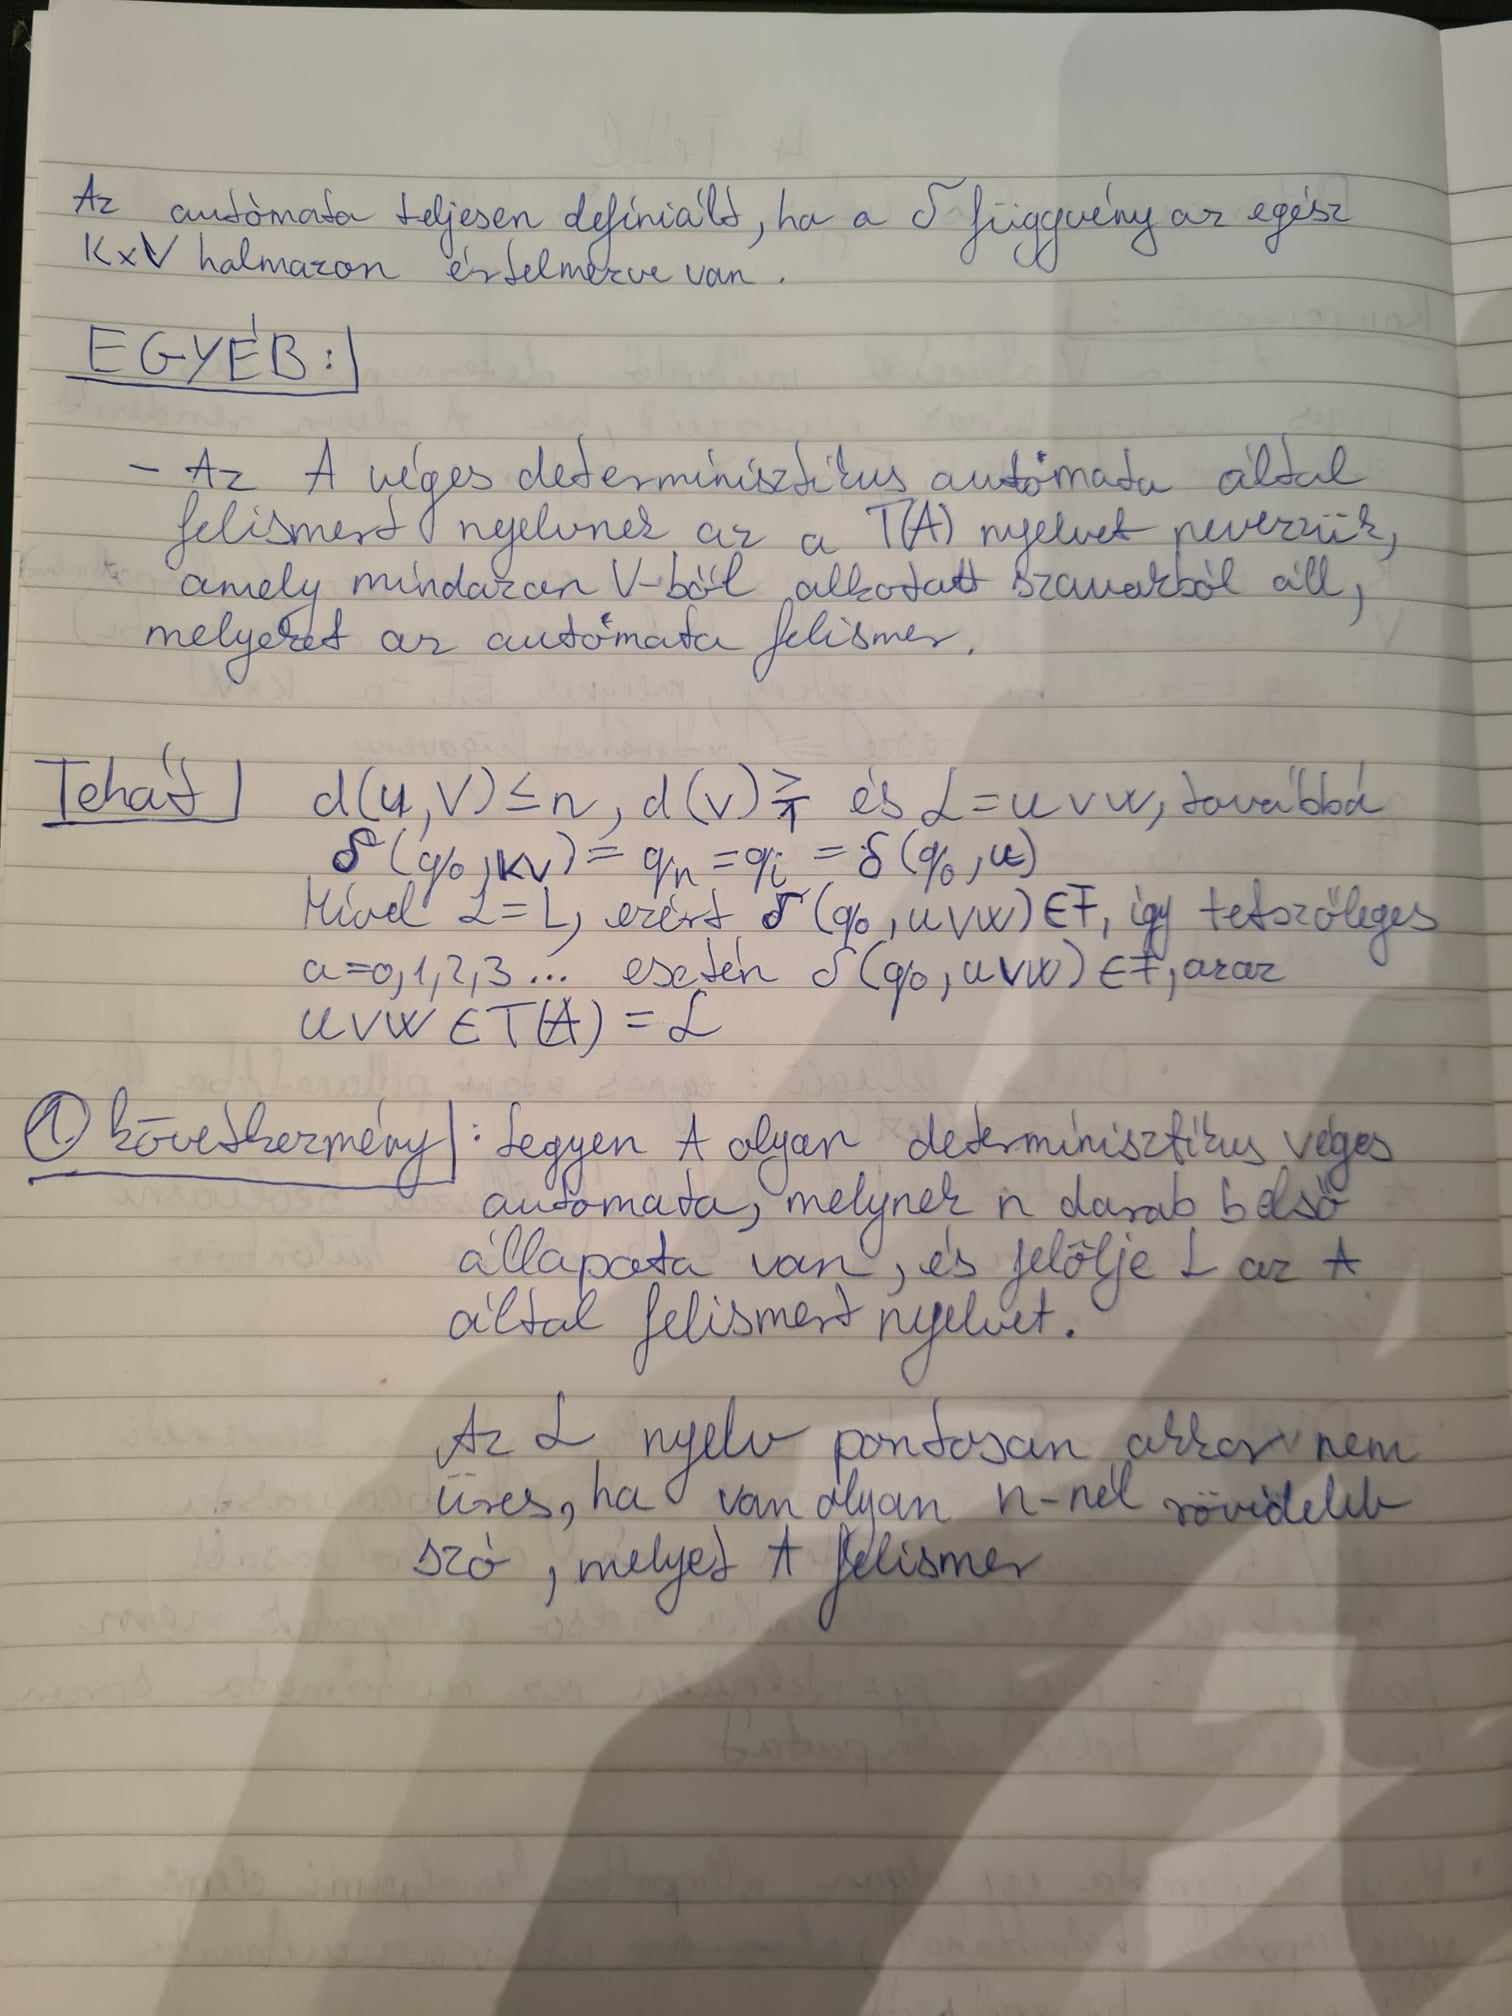 Az autómata teljesen definiált, ha a δ függvény az egész
K×V halmazon értelmezve van.
EGYÉB:
- Az A véges determinisztikus autómata által
felismert nyelvnek az a T(A) nyelvet nevezzük,
amely mindazon V-ből alkotatt szavakból áll,
melyeket az autómata felismer.
Tehát d(u,V)≤n, d(v)≥1 és L=uvw, továbbá
δ(q₀,kv)=qₙ=qᵢ=δ(q₀,u)
Mivel L=L, ezért δ(q₀,uvw)∈F, így tetszőleges
a=0,1,2,3... esetén δ(q₀,uvw)∈F, azaz
uvw∈T(A)=L
1. következmény: Legyen A olyan determinisztikus véges
automata, melynek n darab belső
állapota van, és jelölje L az A
által felismert nyelvet.
Az L nyelv pontosan akkor nem
üres, ha van olyan n-nél rövidebb
szó, melyet A felismer